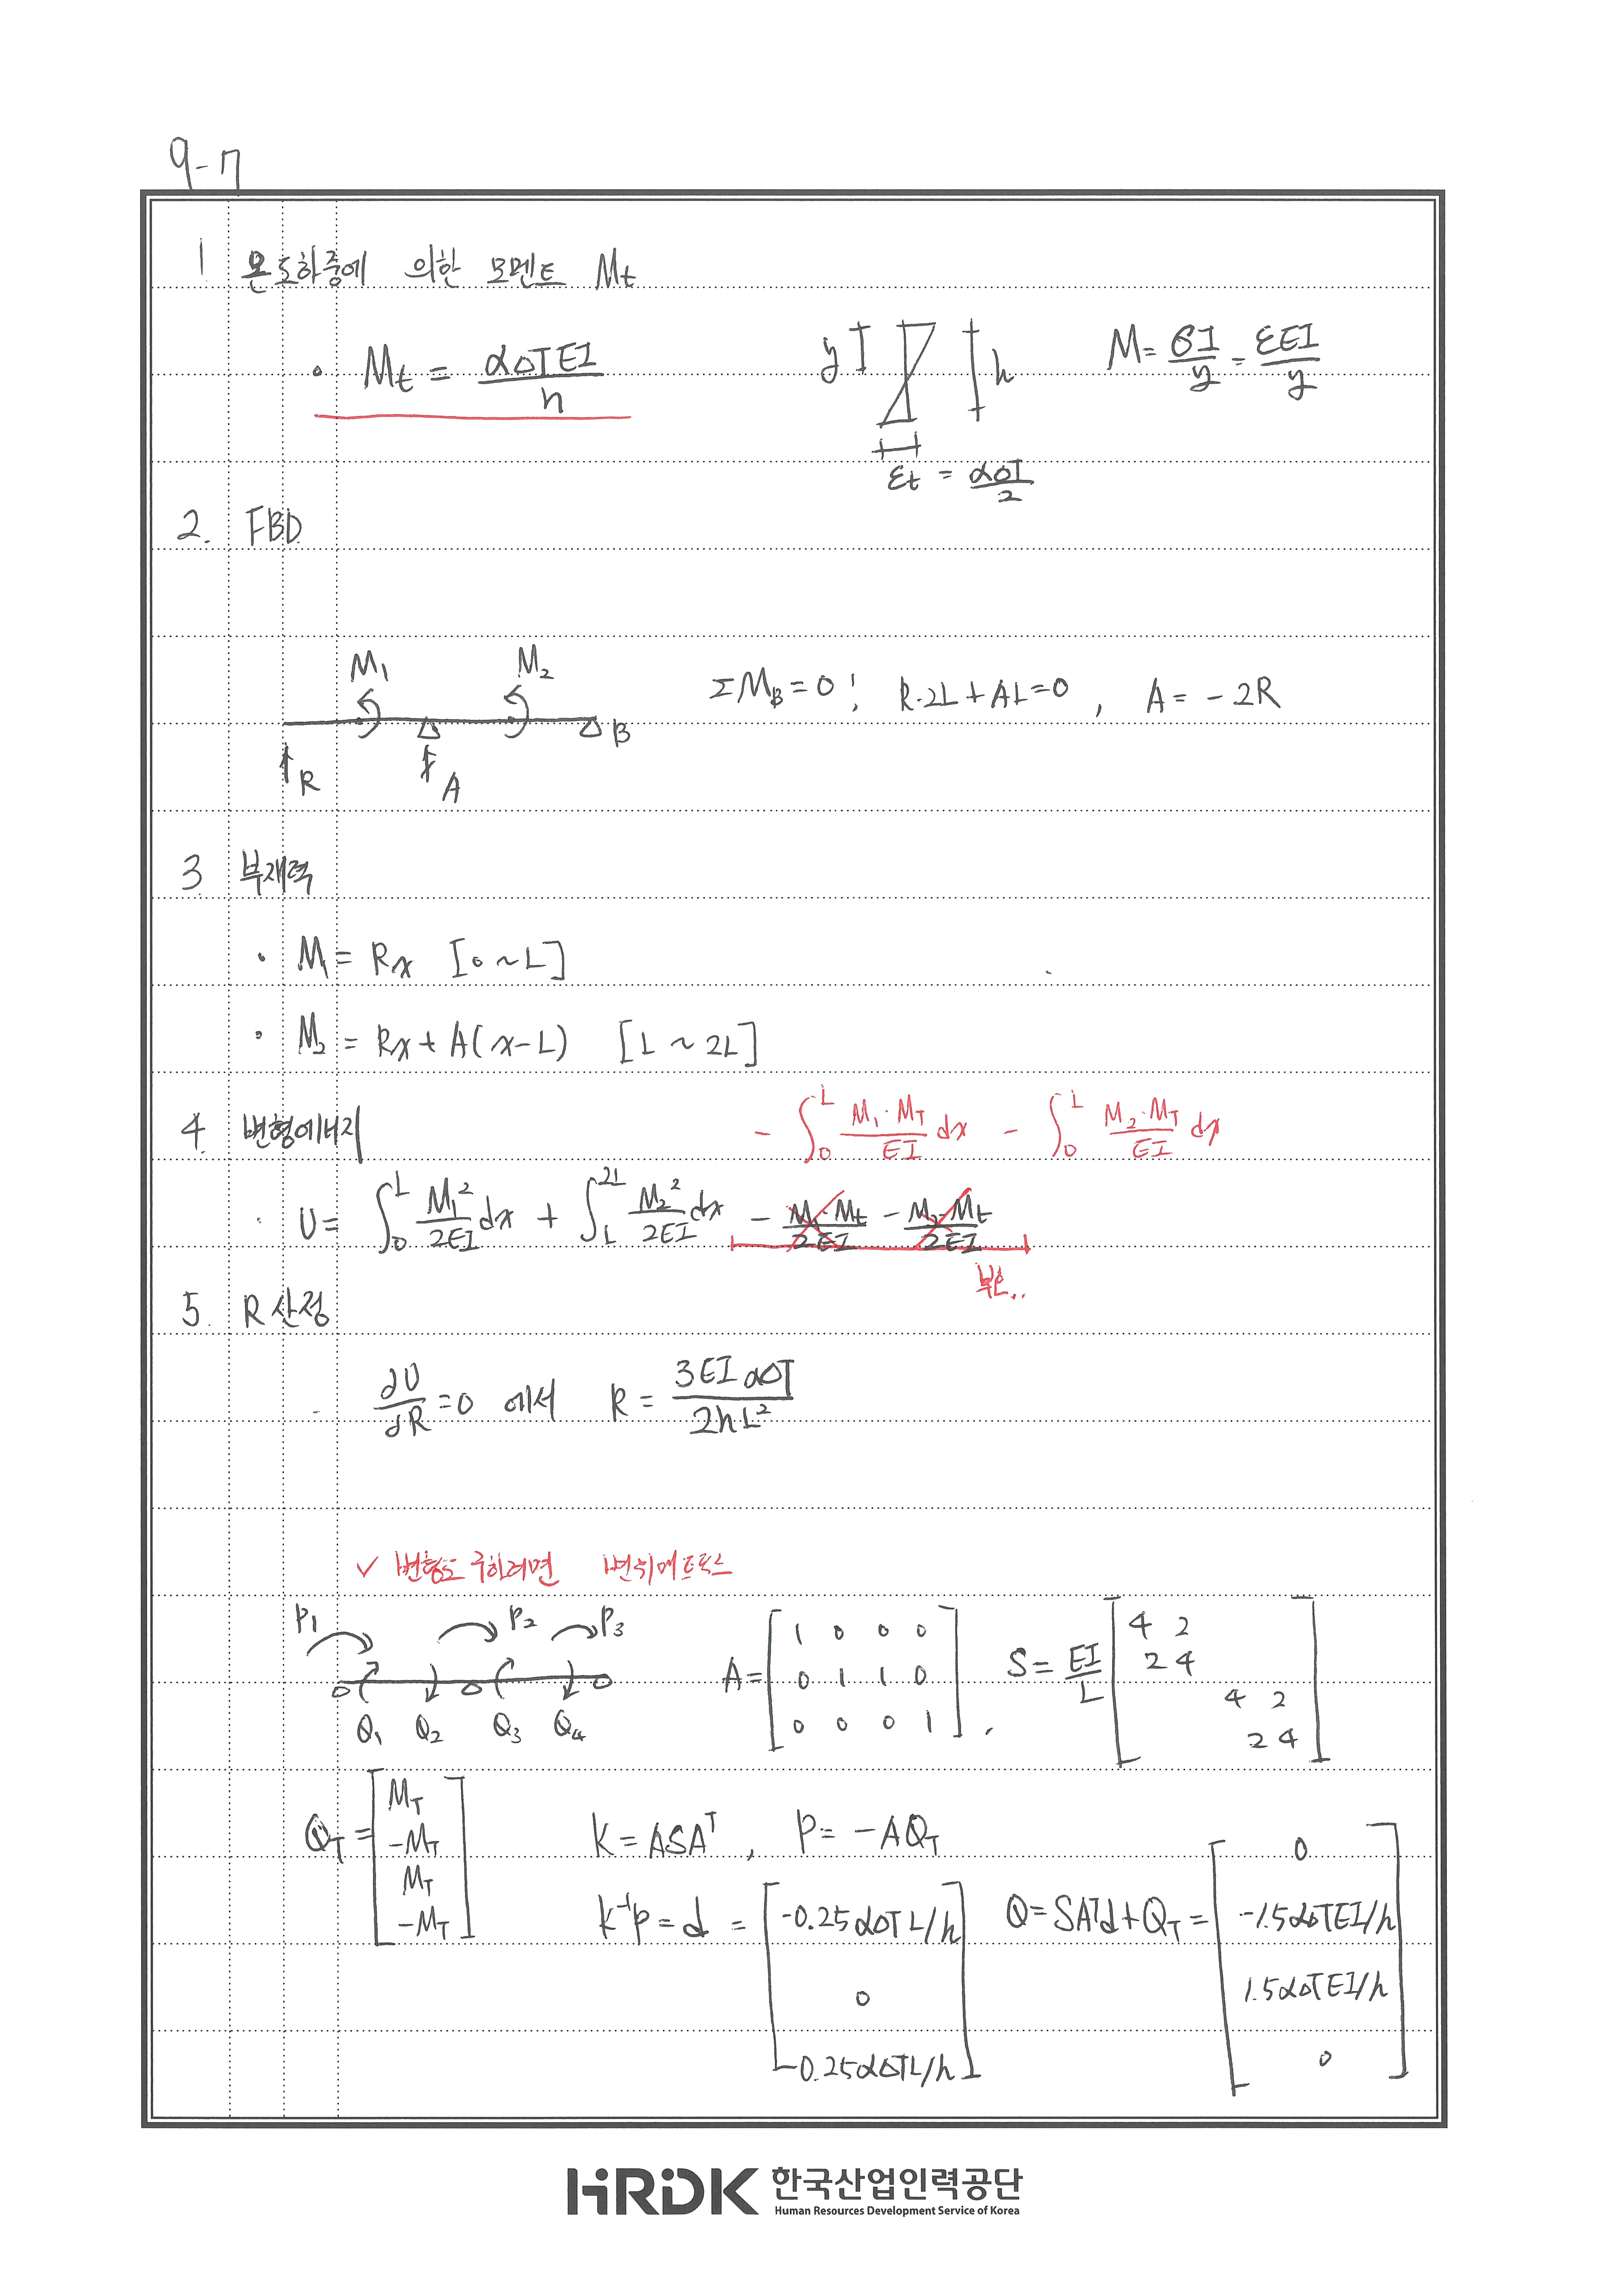 9-7
1 온도하중에 의한 모멘트 Mt
• Mt = αΔTEI/h
y h M = σI/y = εEI/y
εt = αΔT/2
2. FBD
M₁ M₂ ΣM_B = 0 ; R·2L + AL = 0 , A = -2R
B
R A
3 부재력
• M₁ = Rx [0 ~ L]
• M₂ = Rx + A(x-L) [L ~ 2L]
4 변형에너지 - ∫₀ᴸ M₁·M_T/EI dx - ∫₀ᴸ M₂·M_T/EI dx
· U = ∫₀ᴸ M₁²/2EI dx + ∫_L^2L M₂²/2EI dx - M₁·Mt/2EI - M₂·Mt/2EI
5. R 산정
∂U/∂R = 0 에서 R = 3EIαΔT/2hL²
✓ 변형도 구하려면 변위매트릭스
P₁ P₂ P₃
A = [1 0 0 0
0 1 1 0
0 0 0 1] , S = EI/L [4 2
2 4
4 2
2 4]
Q₁ Q₂ Q₃ Q₄
Q_T = [M_T
-M_T
M_T
-M_T]
K = ASAᵀ , P = -AQ_T
K⁻¹P = d = [-0.25αΔTL/h
0
-0.25αΔTL/h]
Q = SAᵀd + Q_T = [0
-1.5αΔTEI/h
1.5αΔTEI/h
0]
HRDK 한국산업인력공단
Human Resources Development Service of Korea